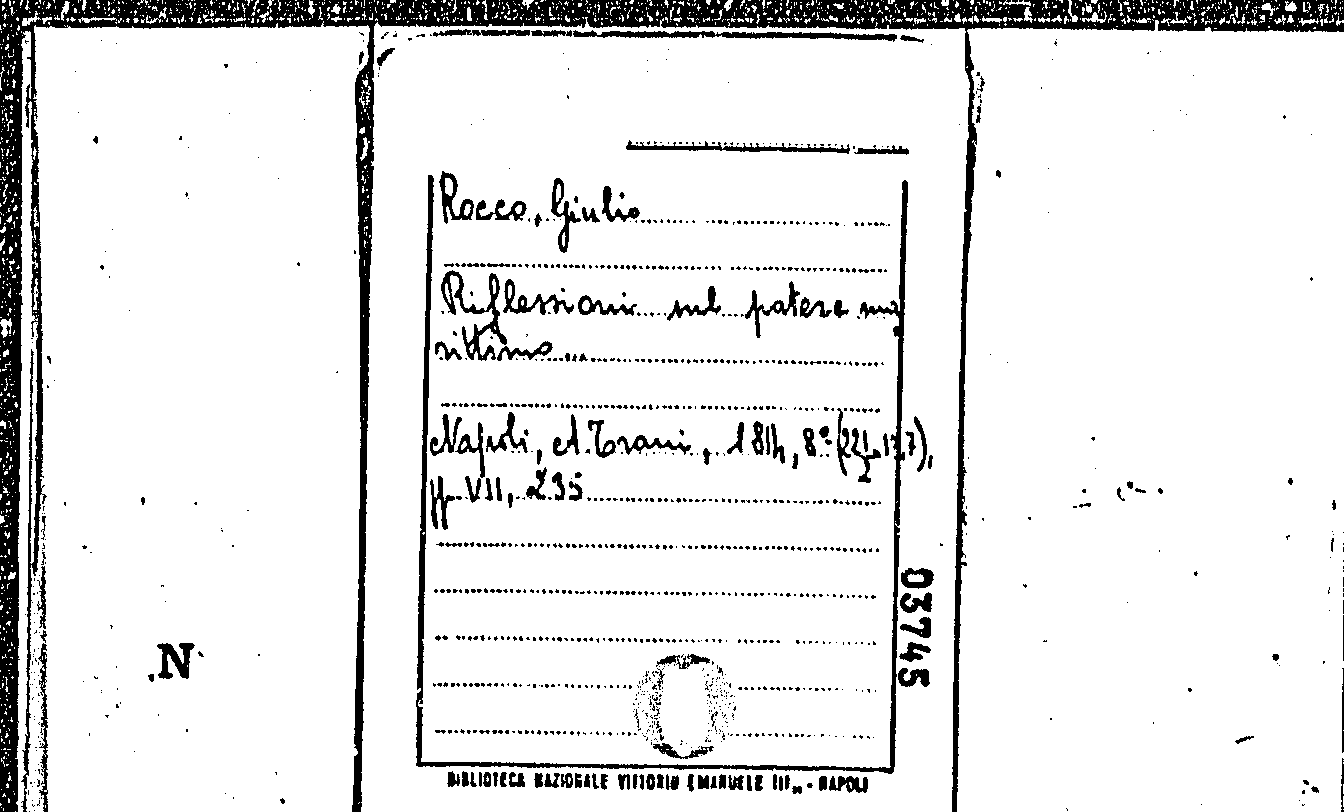 Rocco, Giulio
Riflessioni sul potere ma
rittimo...
Napoli, A. Trani, 1814, 8º
pp. VII, 235
03745
N
BIBLIOTECA NAZIONALE VITTORIO EMANUELE III„ - NAPOLI